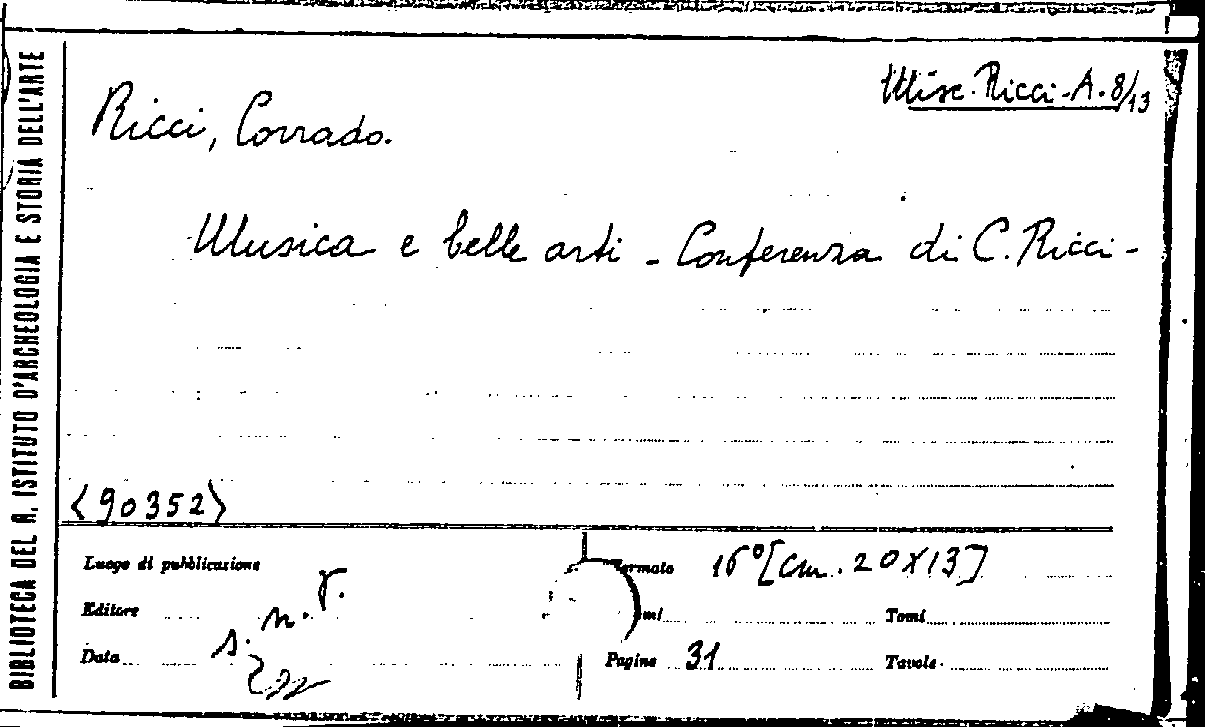 BIBLIOTECA DEL R. ISTITUTO D'ARCHEOLOGIA E STORIA DELL'ARTE
Misc. Ricci-A.8/13
Ricci, Corrado.
Musica e belle arti - Conferenza di C. Ricci -
<90352>
Luogo di pubblicazione
Formato 16° [cm. 20X13]
Editore
Tomi
Data s. n. t.
Pagine 31
Tavole